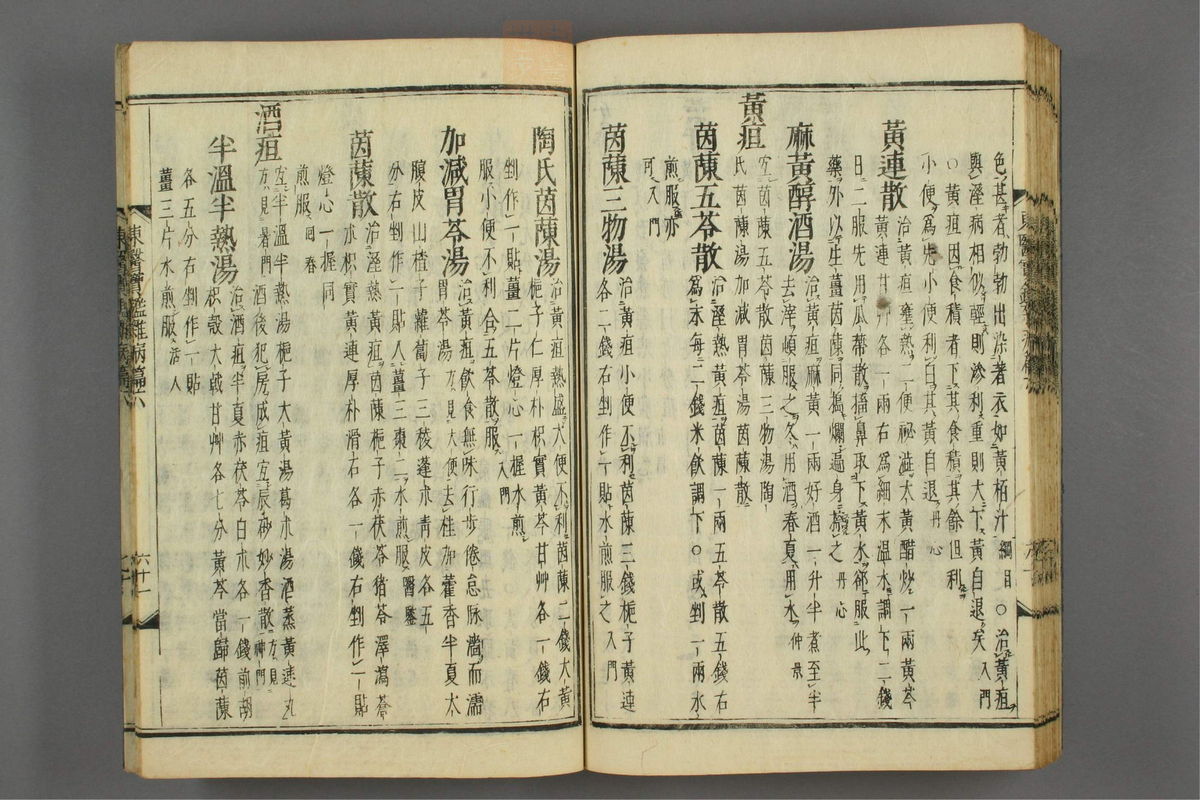 色甚者勃勃出染著衣如黃栢汁綱目○治黃疸
與溼病相似輕則滲利重則大下黃自退矣入門
○黃疸因食積者下其食積其餘但利
小便爲先小便利白其黃自退丹心
黃連散治黃疸壅熱二便祕澁大黃醋炒一兩黃芩
黃連甘艸各一兩右爲細末溫水調下二錢
日二服先用瓜蔕散搐鼻取下黃水却服此
藥外以生薑茵蔯同搗爛遍身擦之丹心
麻黃醇酒湯治黃疸麻黃一兩好酒一升半煮至半
去滓頓服之冬用酒春夏用水仲景
黃疸
宜茵蔯五苓散茵蔯三物湯陶
氏茵蔯湯加減胃苓湯茵蔯散
茵蔯五苓散治溼熱黃疸茵蔯一兩五苓散五錢右
爲末每二錢米飮調下○或剉一兩水
煎服亦
可入門
茵蔯三物湯治黃疸小便不利茵蔯三錢梔子黃連
各二錢右剉作一貼水煎服之入門
陶氏茵蔯湯治黃疸熱盛大便不利茵蔯二錢大黃
梔子仁厚朴枳實黃芩甘艸各一錢右
剉作一貼薑二片燈心一握水煎
服小便不利合五苓散服入門
加減胃苓湯治黃疸飮食無味行步倦怠脉濇而濡
胃苓湯方見大便去桂加藿香半夏大
腹皮山楂子蘿葍子三稜蓬朮靑皮各五
分右剉作一貼入薑三棗二水煎服醫鑒
茵蔯散治溼熱黃疸茵蔯梔子赤茯苓猪苓澤瀉蒼
朮枳實黃連厚朴滑石各一錢右剉作一貼
燈心一握同
煎服回春
酒疸
宜半溫半熱湯梔子大黃湯葛朮湯酒蒸黃連丸
方見暑門酒後犯房成疸宜辰砂妙香散方見神門
半溫半熱湯治酒疸半夏赤茯苓白朮各一錢前胡
枳殼大戟甘艸各七分黃芩當歸茵蔯
各五分右剉作一貼
薑三片水煎服活人
東醫寶鑑雜病篇六
六十一